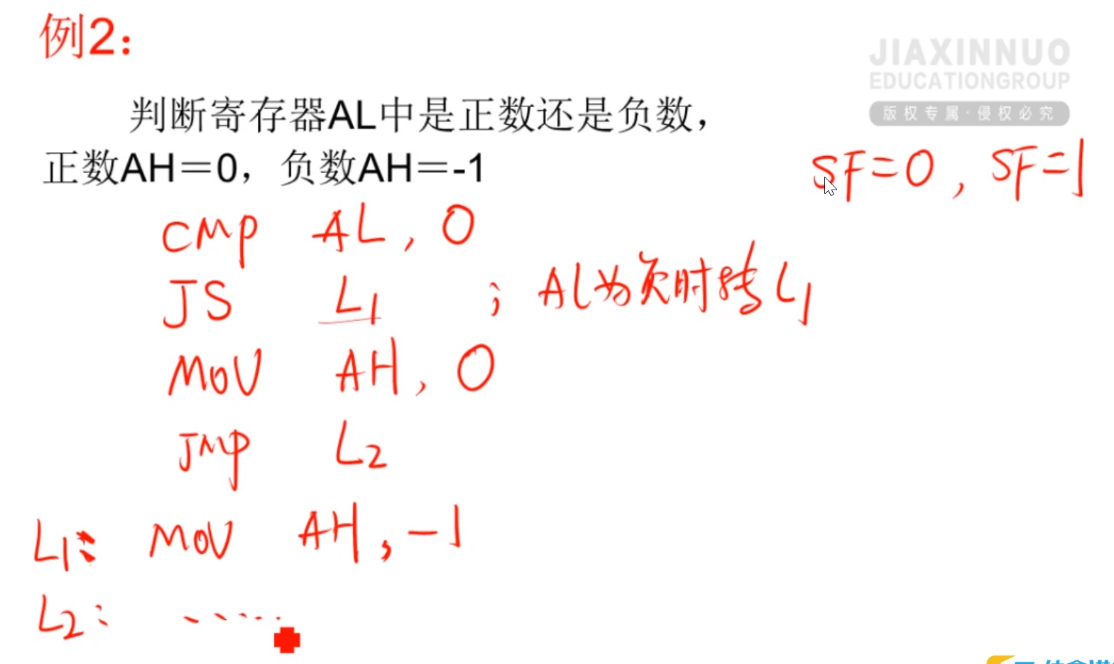 例2:
JIAXINNUO
EDUCATIONGROUP
版权专属·侵权必究
判断寄存器AL中是正数还是负数，
正数AH＝0，负数AH＝-1
SF=0, SF=1
CMP AL, 0
JS L1 ; AL为负时转L1
MOV AH, 0
JMP L2
L1: MOV AH, -1
L2: ......